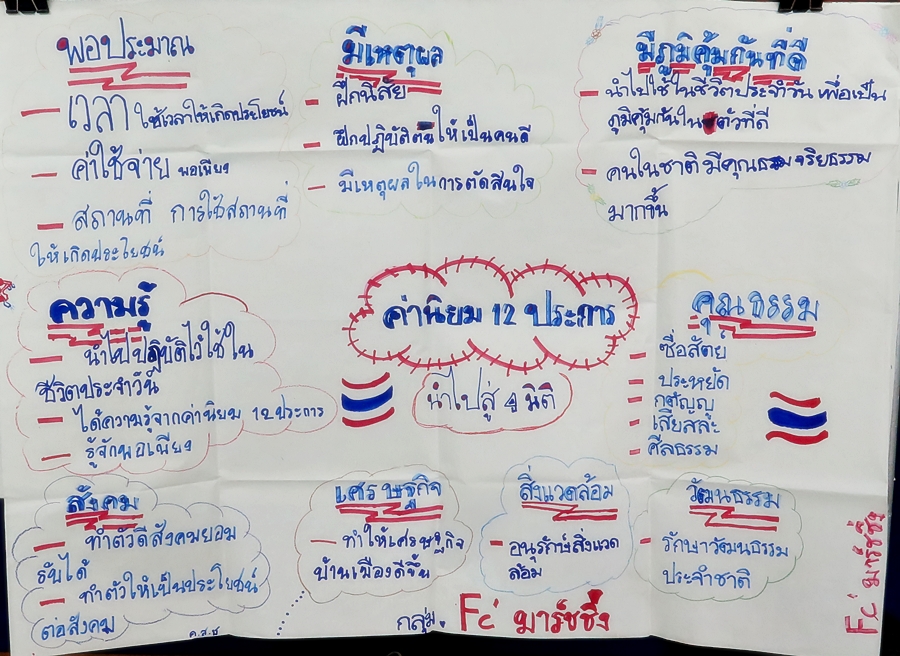 พอประมาณ
- เวลา ใช้เวลาให้เกิดประโยชน์
- ค่าใช้จ่าย พอเพียง
- สถานที่ การใช้สถานที่
ให้เกิดประโยชน์
มีเหตุผล
- ฝึกนิสัย
- ฝึกปฏิบัติตนให้เป็นคนดี
- มีเหตุผลในการตัดสินใจ
มีภูมิคุ้มกันที่ดี
- นำไปใช้ในชีวิตประจำวัน เพื่อเป็น
ภูมิคุ้มกันในตัวที่ดี
- คนในชาติ มีคุณธรรม จริยธรรม
มากขึ้น
ความรู้
- นำไปปฏิบัติไว้ใช้ใน
ชีวิตประจำวัน
- ได้ความรู้จากค่านิยม 12 ประการ
- รู้จักพอเพียง
ค่านิยม 12 ประการ
นำไปสู่ 4 มิติ
คุณธรรม
- ซื่อสัตย์
- ประหยัด
- กตัญญู
- เสียสละ
- ศีลธรรม
สังคม
- ทำตัวดีสังคมยอม
รับได้
- ทำตัวให้เป็นประโยชน์
ต่อสังคม
เศรษฐกิจ
- ทำให้เศรษฐกิจ
บ้านเมืองดีขึ้น
สิ่งแวดล้อม
- อนุรักษ์สิ่งแวด
ล้อม
วัฒนธรรม
- รักษาวัฒนธรรม
ประจำชาติ
ค.ส.ช
กลุ่ม. Fc' มาร์ชชิ่ง
Fc' มาร์ชชิ่ง